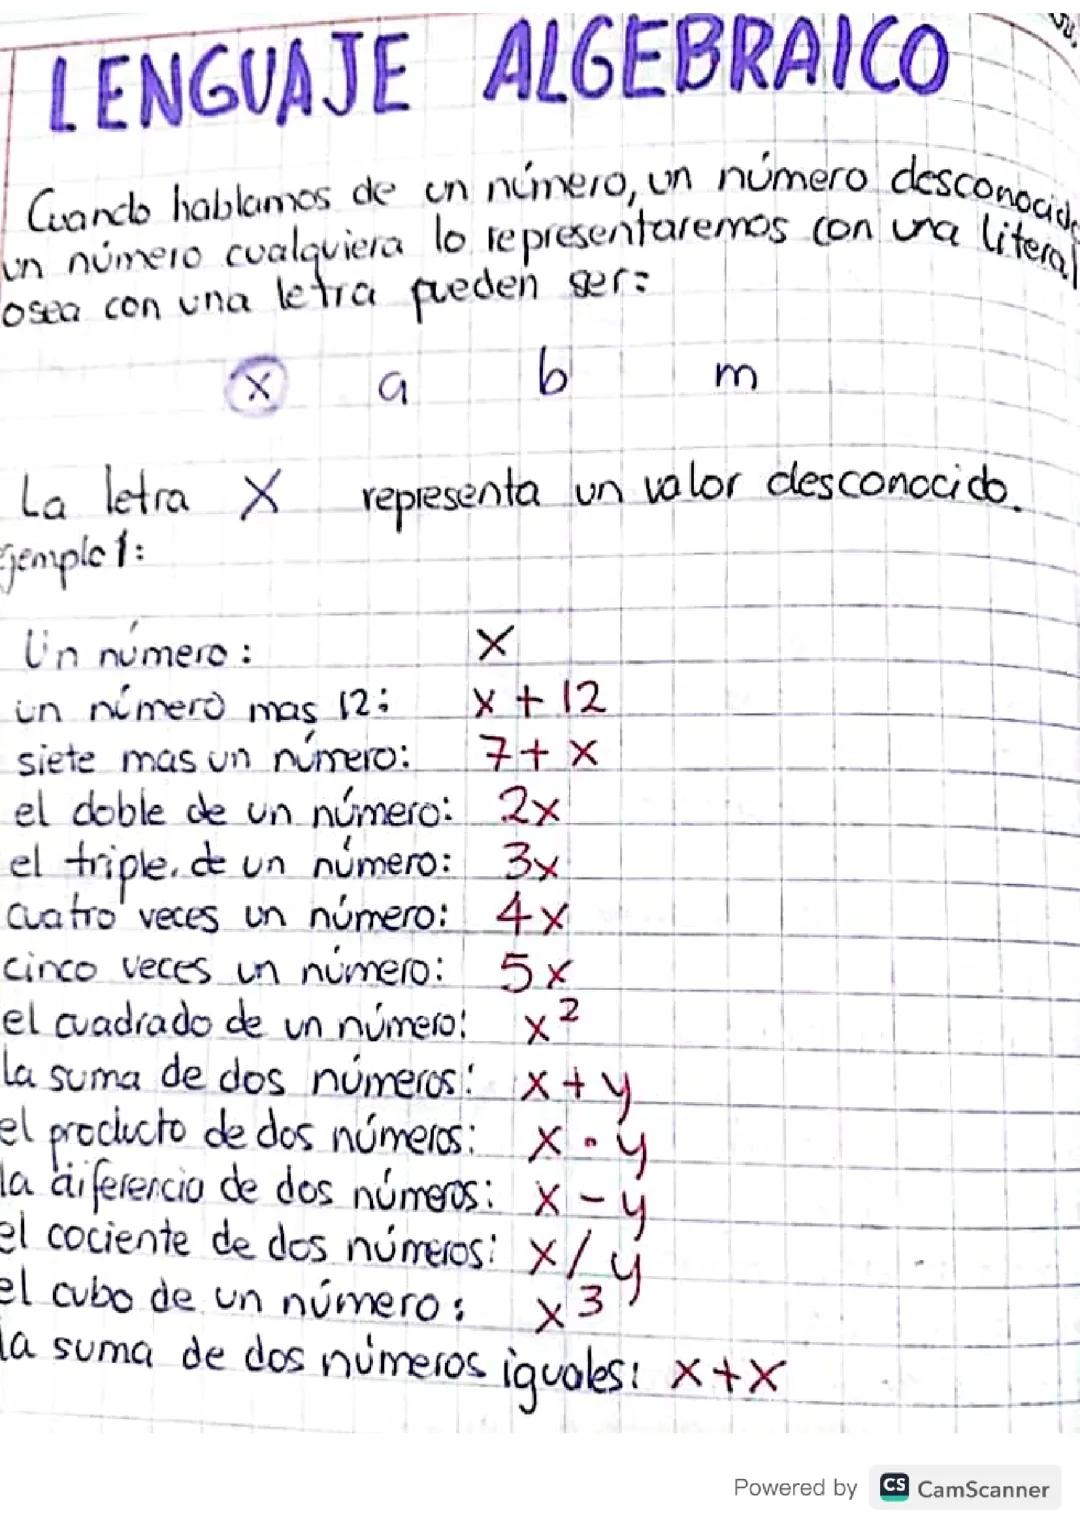 LENGUAJE ALGEBRAICO
Cuando hablamos de un número, un número desconocido
un número cualquiera lo representaremos con una literal
osea con una letra pueden ser:
x a b m
La letra X representa un valor desconocido.
Ejemplo 1:
Un número: x
un número mas 12: x + 12
siete mas un número: 7 + x
el doble de un número: 2x
el triple de un número: 3x
cuatro veces un número: 4x
cinco veces un número: 5x
el cuadrado de un número: x²
la suma de dos números: x + y
el producto de dos números: x · y
la diferencia de dos números: x - y
el cociente de dos números: x / y
el cubo de un número: x³
la suma de dos números iguales: x + x
Powered by CS CamScanner